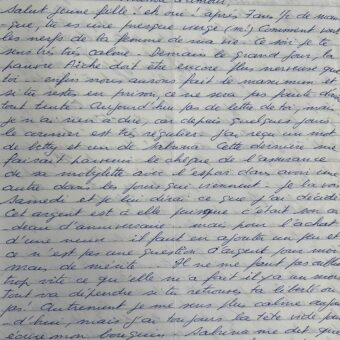 amour,
Salut jeune fille! eh oui! après 7 ans 1/2 de man
que, tu es une presque vierge (m!) Comment vont
les nerfs de la femme de ma vie. Ce soir je te
sens très très calme. Demain le grand jour, la
pauvre doit être encore plus nerveuse que
toi. enfin nous aurons fait le maximum et
si tu restes en prison, ce ne sera pas faute d'avoir
tout tenté. Aujourd'hui pas de lettre de toi, mais
je n'ai rien à dire, car depuis quelques jours
le courrier est très régulier. J'ai reçu un mot
de Letty et un de Sabrina. Cette dernière me
faisait parvenir le chèque de l'assurance
de sa mobylette avec l'espoir d'en avoir une
autre dans les jours qui viennent. Je la vois
Samedi et je lui dirai ce que j'ai décidé
Cet argent est à elle puisque c'était son ca
deau d'anniversaire. mais pour l'achat
d'une neuve il faut en ajouter un peu et
ce n'est pas une question d'argent pour moi
mais de mérite. Il ne faut pas oublier
trop vite ce qu'elle m'a fait il y a un mois
Tout va dépendre si tu retrouves ta liberté ou
pas! Autrement je me sens plus calme aujour
d'hui, mais j'ai toujours la tête vide pour
écrire mon bouquin. Sabrina me dit que